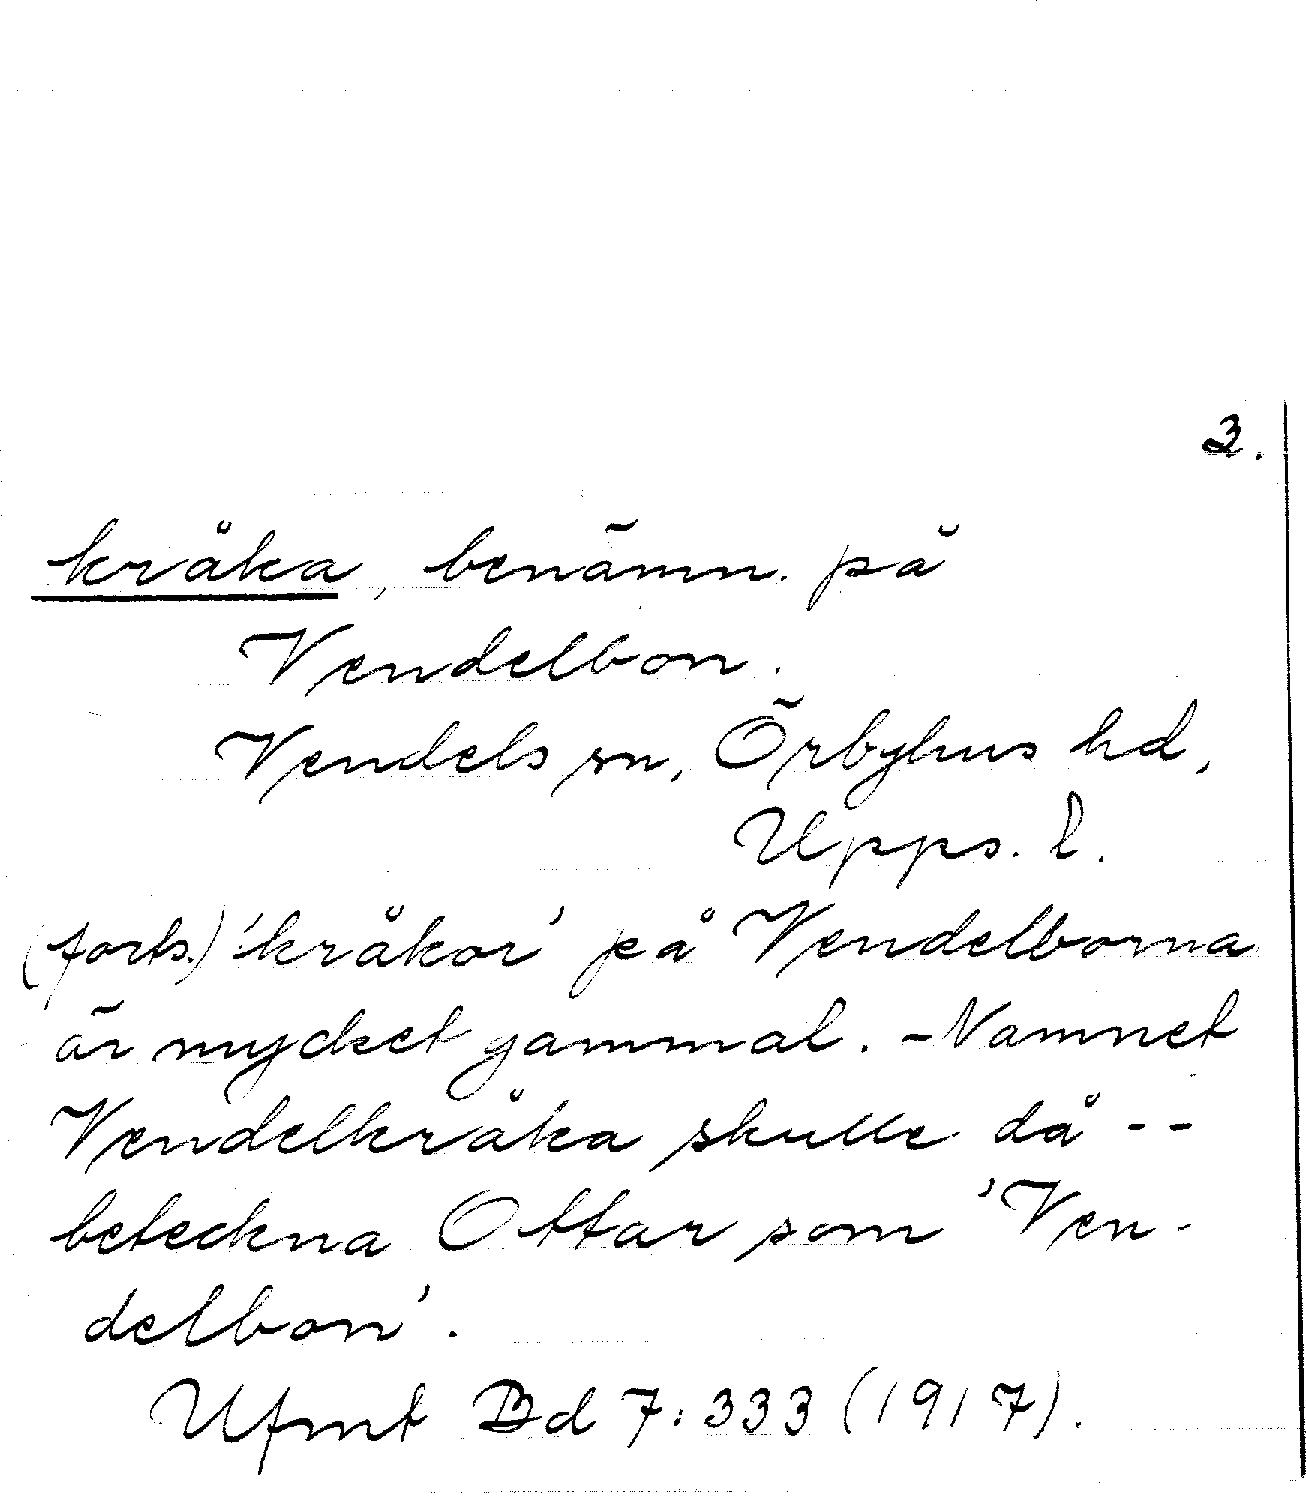 3.
kråka, benämn. på
Vendelbon.
Vendels sn, Örbyhus hd,
Upps. l.
(forts.) 'kråkor' på Vendelborna
är mycket gammal. - Namnet
Vendelkråka skulle då - -
beteckna Ottar som 'Ven-
delbon'.
Ufmt Bd 7:333 (1917).